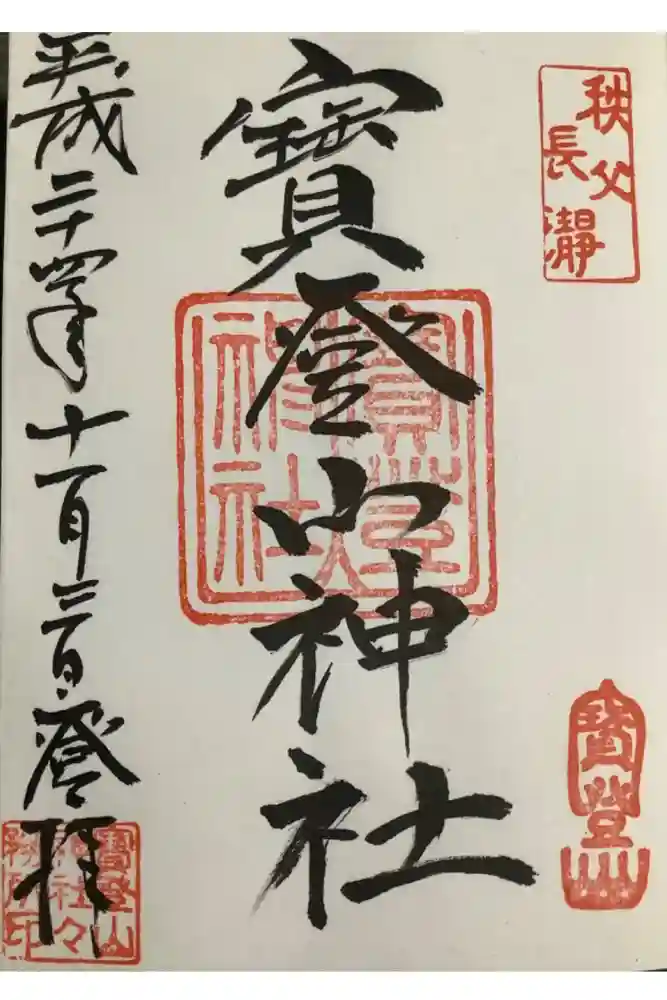 秩父
長瀞
寶登山神社
寶登山
神社
寶登山
平成二十四年十一月三日登拝
寶登山
神社々
務所印